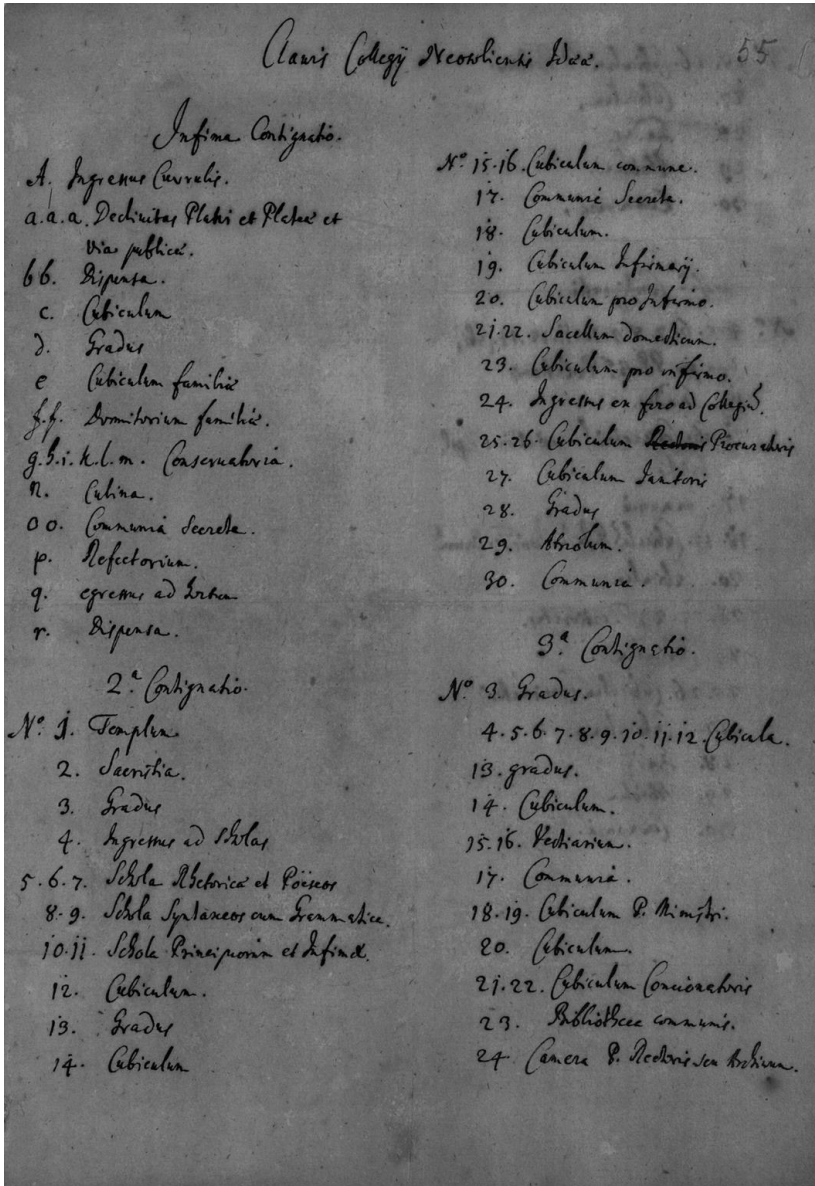 Clavis Collegÿ Neosoliensis Ideæ.
55
Infima Contignatio.
A. Ingressus Currulis.
a.a.a. Declivitas Platei et Plateæ et
via publicæ.
bb. Dispensa.
c. Cubiculum
d. Gradus
e Cubiculum familiæ
f.f. Dormitorium familiæ.
g.h.i.k.l.m. Conservatoria.
n. Culina.
oo. Communia Secreta.
p. Refectorium.
q. egressus ad hortum
r. Dispensa.
2.ª Contignatio.
Nº 1. Templum
2. Sacristia.
3. Gradus
4. Ingressus ad Scholas
5.6.7. Schola Rhetoricæ et Poëseos
8.9. Schola Syntaxeos cum Grammatica.
10.11. Schola Principiorum et Infimæ.
12. Cubiculum.
13. Gradus
14. Cubiculum
Nº 15.16. Cubiculum commune.
17. Communia Secreta.
18. Cubiculum.
19. Cubiculum Infirmarÿ.
20. Cubiculum pro Infirmo.
21.22. Sacellum domesticum.
23. Cubiculum pro infirmo.
24. Ingressus ex foro ad Collegiũ.
25.26. Cubiculum Rectoris Procuratoris
27. Cubiculum Ianitoris
28. Gradus
29. Atriolum.
30. Communia.
3.ª Contignatio.
Nº 3. Gradus.
4.5.6.7.8.9.10.11.12. Cubicula.
13. gradus.
14. Cubiculum.
15.16. Vestiarium.
17. Communia.
18.19. Cubiculum P. Ministri.
20. Cubiculum.
21.22. Cubiculum Concionatoris
23. Bibliotheca communis.
24 Camera P. Rectoris seu Archivum.